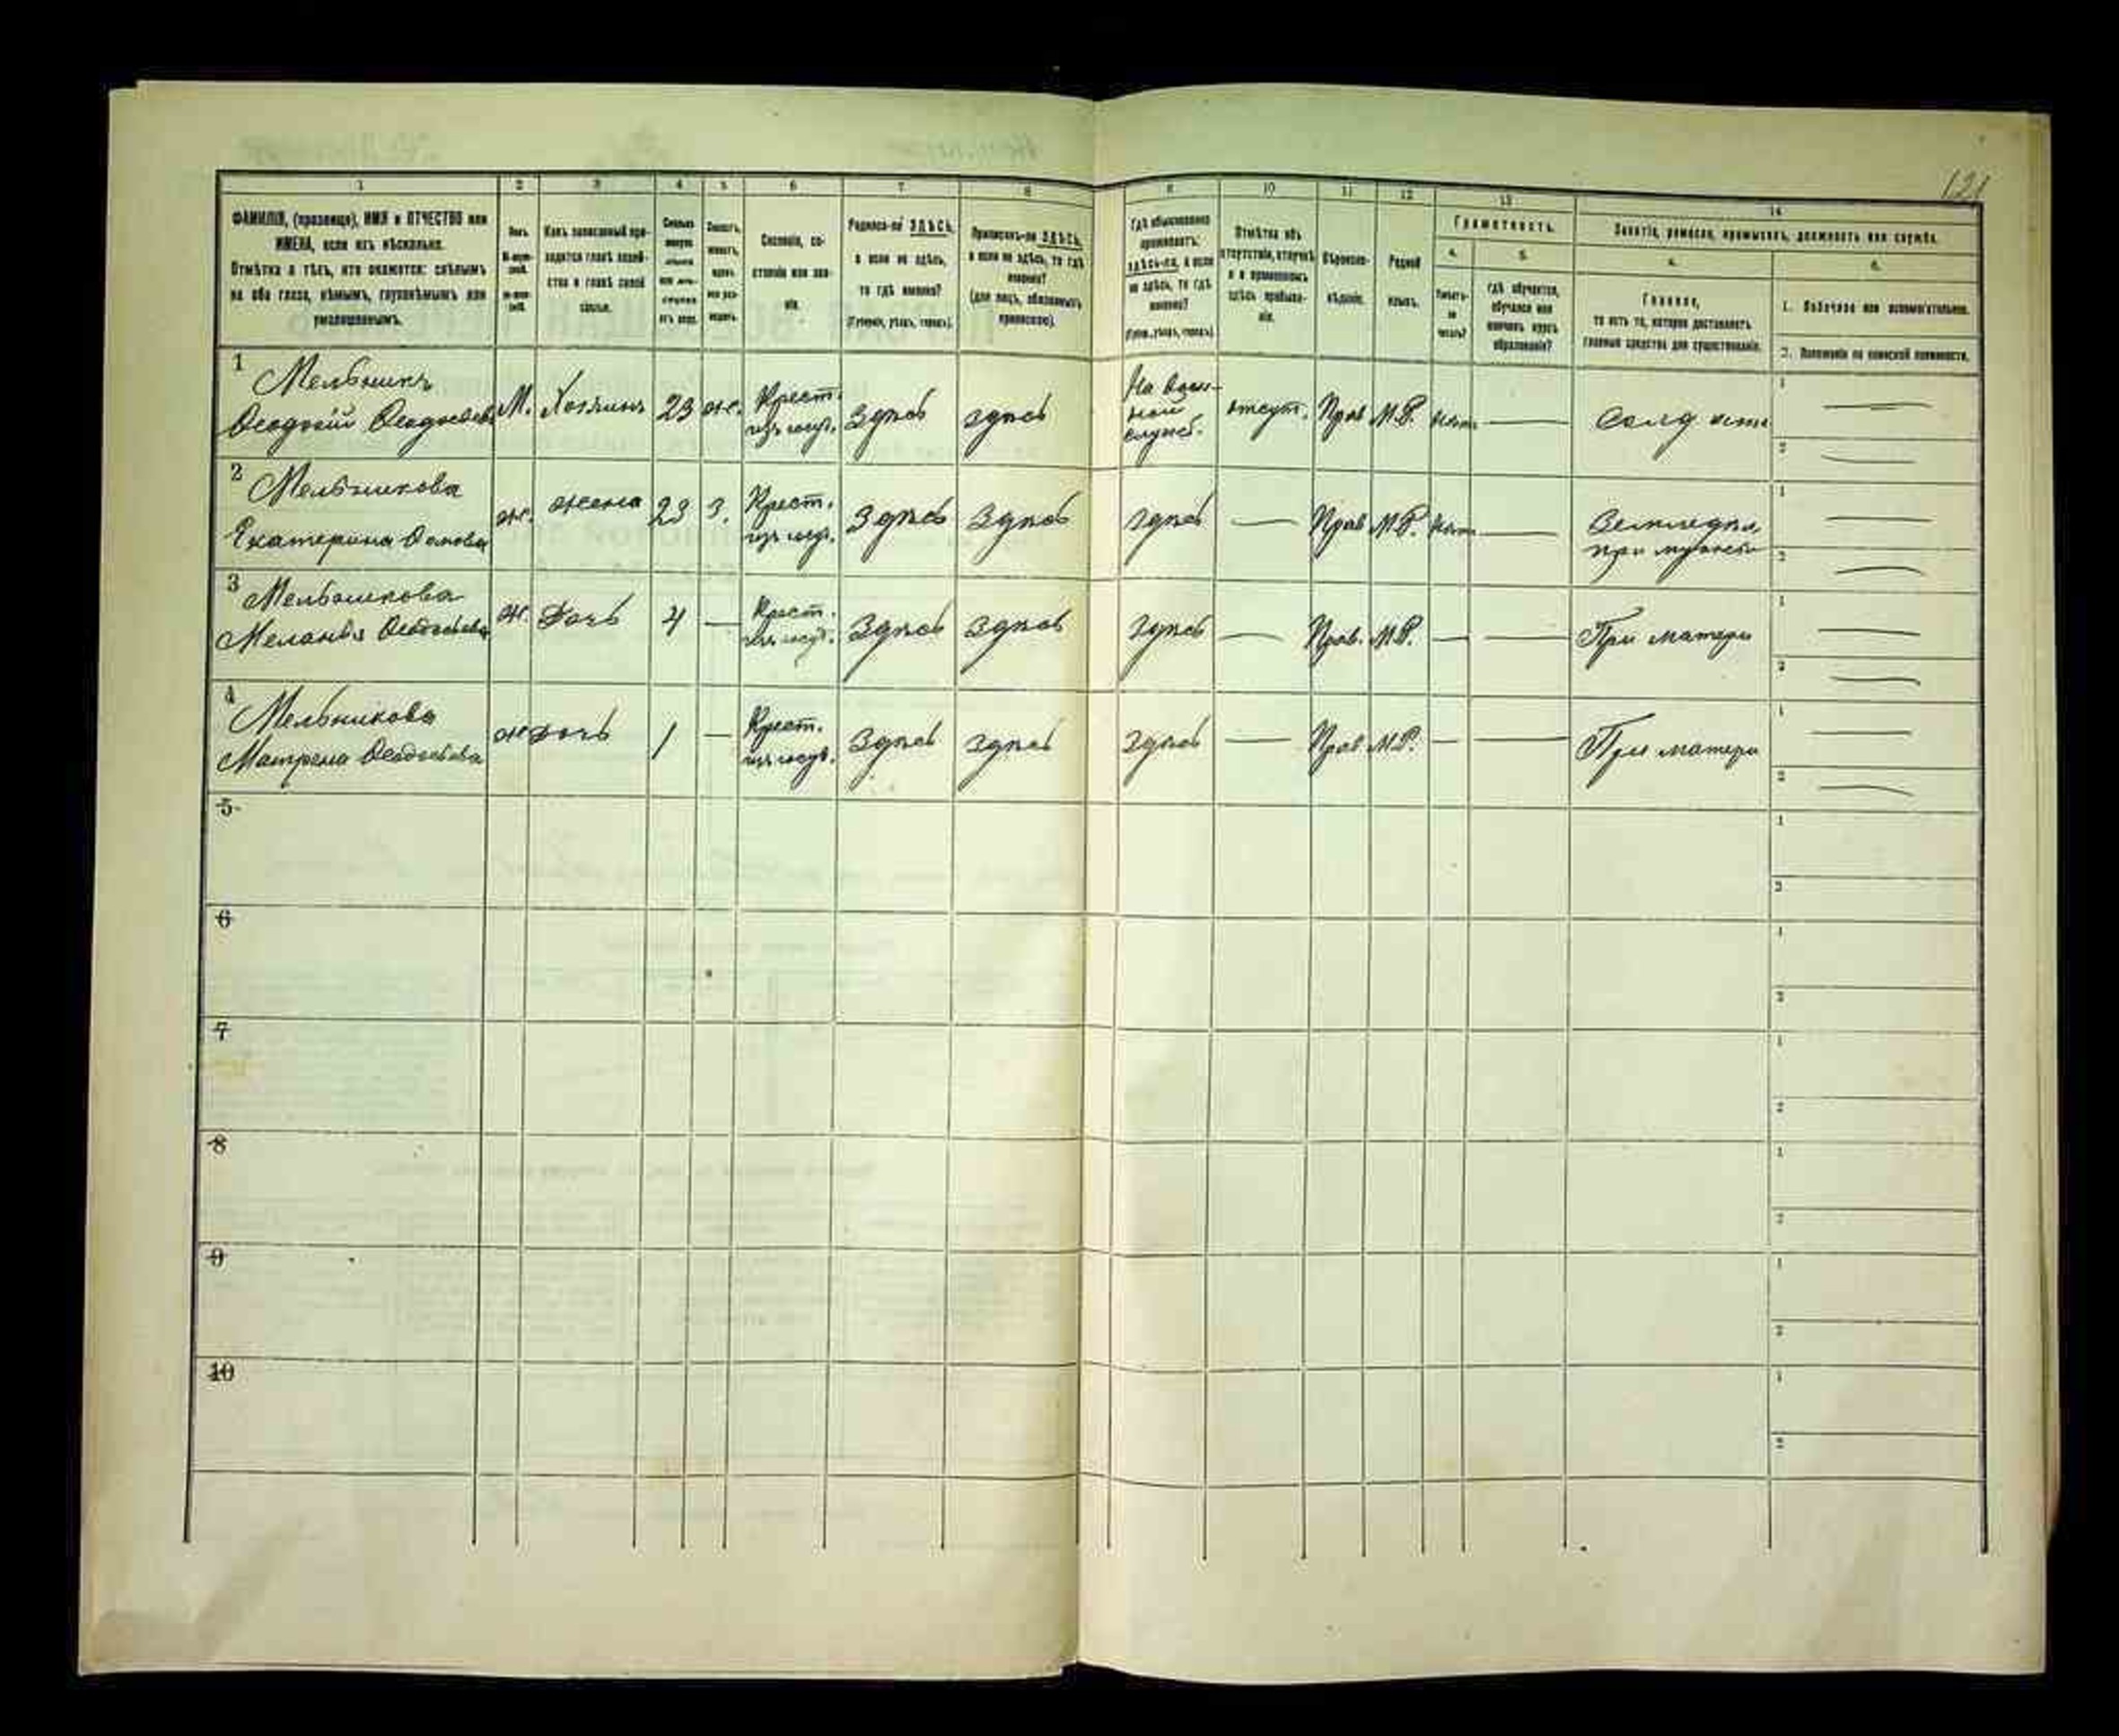 121
1 2 3 4 5 6 7 8 9 10 11 12 13 14
ФАМИЛІЯ, (прозвище), ИМЯ и ОТЧЕСТВО или
ИМЕНА, если ихъ нѣсколько.
Отмѣтка о тѣхъ, кто окажется: слѣпымъ
на оба глаза, нѣмымъ, глухонѣмымъ или
умалишеннымъ.
Полъ.
Какъ записанный при-
ходится главѣ хозяй-
ства и главѣ своей
семьи.
Сословіе, со-
стояніе или зва-
ніе.
Родился-ли ЗДѢСЬ,
а если не здѣсь,
то гдѣ именно?
(Губернія, уѣздъ, городъ).
Приписанъ-ли ЗДѢСЬ,
а если не здѣсь, то гдѣ
именно?
(для лицъ, обязанныхъ
припискою).
Гдѣ обыкновенно
проживаетъ:
здѣсь-ли, а если
не здѣсь, то гдѣ
именно?
(Губерн., уѣздъ, городъ).
Отмѣтка объ
отсутствіи, отлучкѣ
и о временномъ
здѣсь пребыва-
ніи.
Вѣроиспо-
вѣданіе.
Родной
языкъ.
Грамотность.
а. б.
Умѣетъ-
ли
читать?
гдѣ обучается,
обучался или
кончилъ курсъ
образованія?
Занятіе, ремесло, промыселъ, должность или служба.
а. б.
Главное,
то есть то, которое доставляетъ
главныя средства для существованія.
1. Побочное или вспомогательное.
2. Положеніе по воинской повинности.
1 Мельникъ
Ѳеодосій Ѳеодосѣевъ М. Хозяинъ 23 ж. Крест. изъ госуд. Здѣсь здѣсь На воен-
ной
служб. отсут. Прав М.Р. нѣтъ — 1 —
2 —
2 Мельникова
Екатерина ж. жена 23 З. Крест. изъ госуд. Здѣсь Здѣсь здѣсь — Прав М.Р. нѣтъ — при 1 —
2 —
3 Мельникова
Меланья Ѳеодосѣева ж. Дочь 4 — Крест. изъ госуд. Здѣсь Здѣсь здѣсь — Прав. М.Р. — — При матери 1 —
2 —
4 Мельникова
Матрена Ѳеодосѣева ж Дочь 1 — Крест. изъ госуд. Здѣсь здѣсь здѣсь — Прав М.Р. — — При матери 1 —
2 —
5 1
2
6 1
2
7 1
2
8 1
2
9 1
2
10 1
2